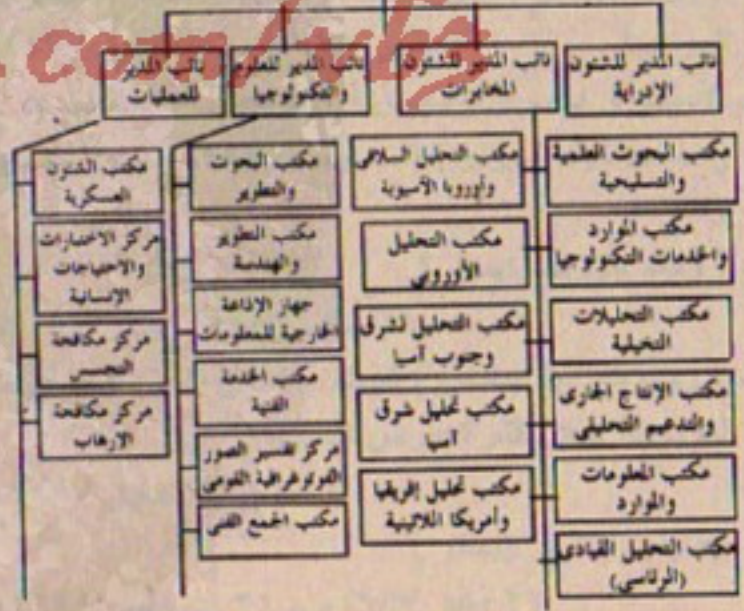 com/vb3
نائب المدير للشئون
الإدراية
نائب المدير للشئون
المخابرات
نائب المدير للعلوم
والتكنولوجيا
نائب المدير
للعمليات
مكتب البحوث العلمية
والتسليحية
مكتب الموارد
والخدمات التكنولوجيا
مكتب التحليلات
التخيلية
مكتب الإنتاج الجارى
والتدعيم التحليلى
مكتب المعلومات
والموارد
مكتب التحليل القيادى
(الرئاسى)
مكتب التحليل السلافى
وأوروبا الآسيوية
مكتب التحليل
الأوروبى
مكتب التحليل لشرق
وجنوب آسيا
مكتب تحليل شرق
آسيا
مكتب تحليل إفريقيا
وأمريكا اللاتينية
مكتب البحوث
والتطوير
مكتب التطوير
والهندسة
جهاز الإذاعة
الخارجية للمعلومات
مكتب الخدمة
الفنية
مركز تفسير الصور
الفوتوغرافية القومى
مكتب الجمع الفنى
مكتب الشئون
العسكرية
مركز
والاحتياجات
الإنسانية
مركز مكافحة
التجسس
مركز مكافحة
الإرهاب